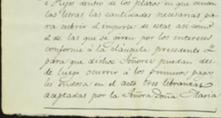 i Rejo dentro de los plazos en que venzan
las letras las cantidades necesarias, pa-
ra cubrir el importe de estas asi como
el de las que se giren por los intereses
conforme á la cláusula precedente y
para que dichos Señores puedan des-
de luego ocurrir á los primeros pagos
les endosa en el acto tres libranzas
aceptadas por la Señora Doña Maria